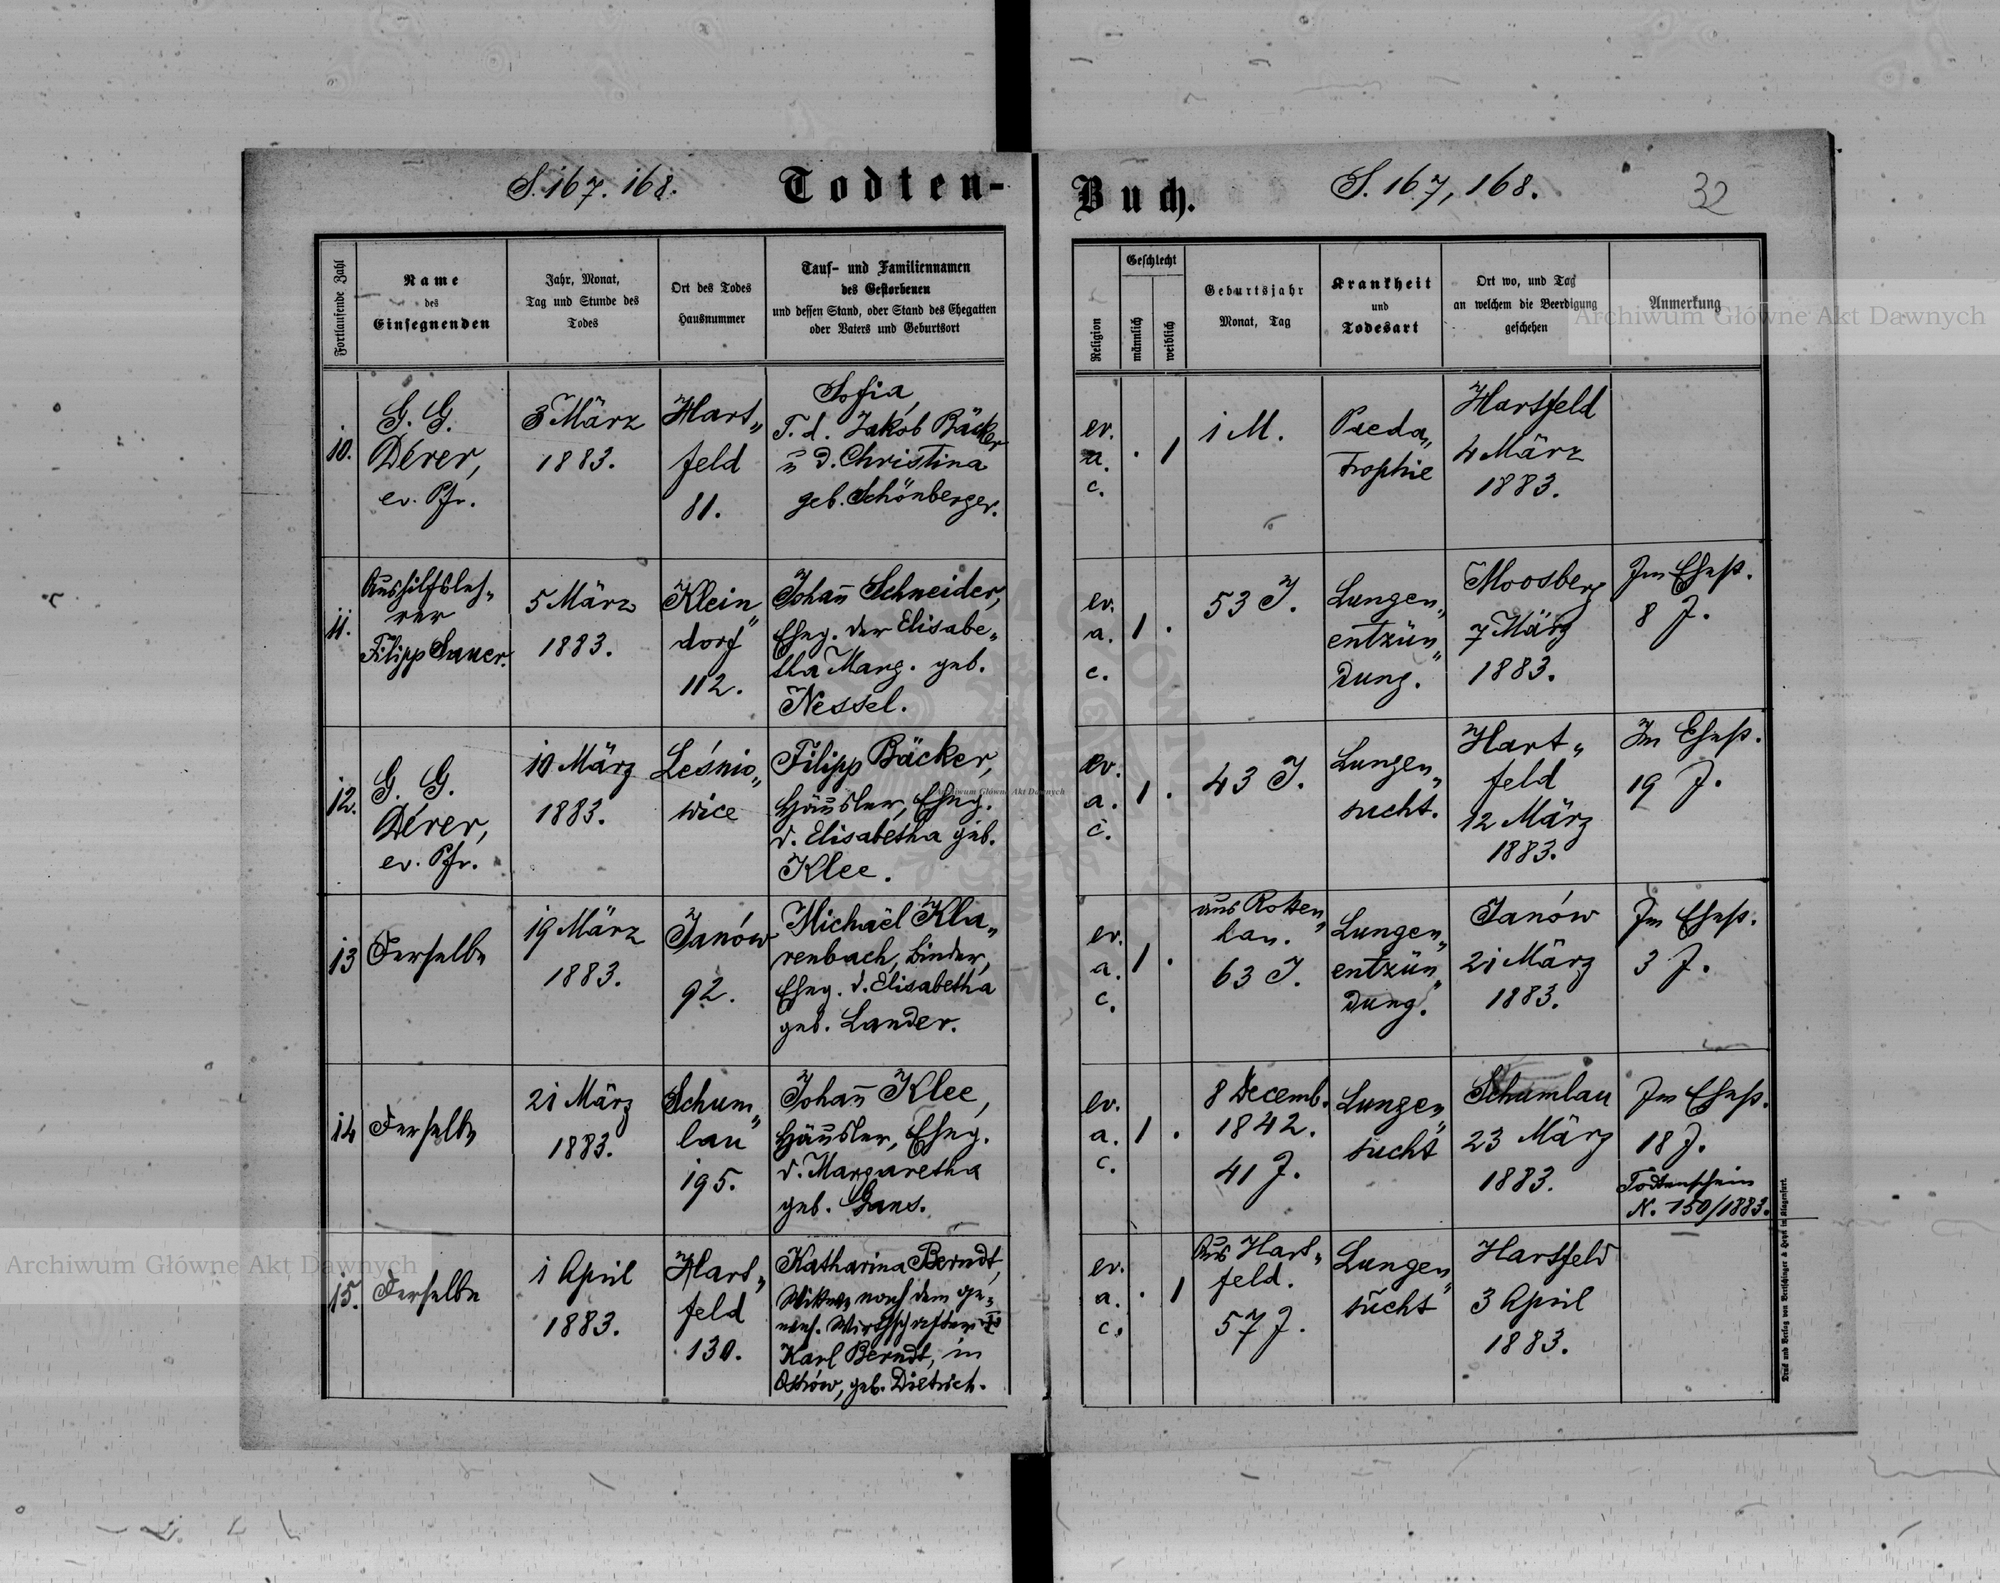 S. 167. 168.
Todten-
Buch.
S. 167, 168.
32
Fortlaufende Zahl
Name
des
Einsegnenden
Jahr, Monat,
Tag und Stunde des
Todes
Ort des Todes
Hausnummer
Tauf- und Familiennamen
des Gestorbenen
und dessen Stand, oder Stand des Ehegatten
oder Vaters und Geburtsort
Religion
Geschlecht
männlich
weiblich
Geburtsjahr
Monat, Tag
Krankheit
und
Todesart
Ort wo, und Tag
an welchem die Beerdigung
geschehen
Anmerkung
10.
G. G.
Dérer,
ev. Pfr.
3 März
1883.
Hart„
feld
81.
Sofia,
T. d. Jakob Bäcker
u d. Christina
geb. Schönberger.
ev.
a.
c.
. 1
1 M.
Paeda„
trophie
Hartfeld
4 März
1883.
11.
Aushilfsleh„
rer
Filipp Sauer.
5 März
1883.
Klein„
dorf
112.
Johan̄ Schneider,
Eheg. der Elisabe„
tha Marg. geb.
Nessel.
ev.
a.
c.
1 .
53 J.
Lungen„
entzün„
dung.
Moosberg
7 März
1883.
Im Ehest.
8 J.
12.
G. G.
Dérer,
ev. Pfr.
10 März
1883.
Leśnio„
wice
Filipp Bäcker,
Häusler, Eheg.
d. Elisabetha geb.
Klee.
ev.
a.
c.
1 .
43 J.
Lungen„
sucht.
Hart„
feld
12 März
1883.
Im Ehest.
19 J.
13
Derselbe
19 März
1883.
Janów
92.
Michaël Kla„
renbach, Binder,
Eheg. d. Elisabetha
geb. Lander.
ev.
a.
c.
1 .
aus Rotten„
han.
63 J.
Lungen„
entzün„
dung.
Janów
21 März
1883.
Im Ehest.
3 J.
14
Derselbe
21 März
1883.
Schum„
lau
195.
Johan̄ Klee,
Häusler, Eheg.
d. Margaretha
geb. Gans.
ev.
a.
c.
1 .
8 Decemb.
1842.
41 J.
Lungen„
sucht
Schumlau
23 März
1883.
Im Ehest.
18 J.
Todtenschein
N. 150/1883.
15.
Derselbe
1 April
1883.
Hart„
feld
130.
Katharina Berndt,
Witwe nach dem ge„
wes. Wirthschafter
Karl Berndt, in
Ostrów, geb. Dietrich.
ev.
a.
c.
. 1
Aus Hart„
feld.
57 J.
Lungen„
sucht
Hartfeld
3 April
1883.
Druck und Verlag von Bertschinger & Heyn in Klagenfurt.
Archiwum Główne Akt Dawnych
Archiwum Główne Akt Dawnych
Archiwum Główne Akt Dawnych